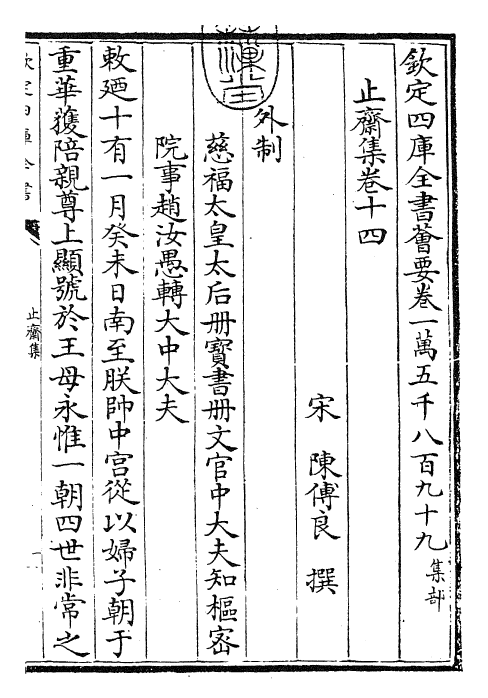 欽定四庫全書薈要卷一萬五千八百九十九 集部
止齋集卷十四
宋 陳傅良 撰
外制
慈福太皇太后册寶書册文官中大夫知樞密
院事趙汝愚轉大中大夫
敕廼十有一月癸未日南至朕帥中宮從以婦子朝于
重華獲陪親尊上顯號於王母永惟一朝四世非常之
欽定四庫全書
止齋集
一